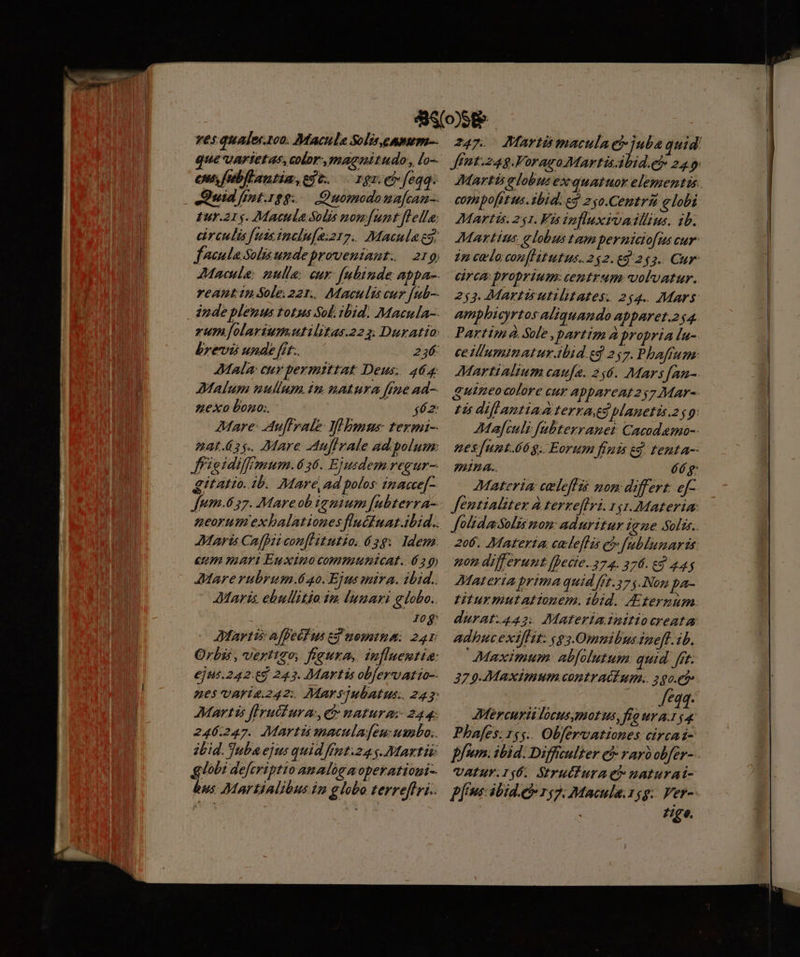 ❧(o)☙
res quales.100. Maculæ Solis, earum-
que varietas, color, magnitudo, lo-
cus, substantia, &c. 191. & seqq.
Quid sint.188. Quomodo nascan-
tur.215. Maculæ Solis non sunt stellæ
circulis suis inclusæ.217. Maculæ &
faculæ Solis unde proveniant. 219
Maculæ nullæ cur subinde appa-
reant in Sole.221. Maculis cur sub-
inde plenus totus Sol. ibid. Macula-
rum solarium utilitas.223. Duratio
brevis unde sit. 236
Mala cur permittat Deus. 463
Malum nullum in natura sine ad-
nexo bono. 562
Mare Australe Isthmus termi-
nat.635. Mare Australe ad polum
frigidissimum.636. Ejusdem regur-
gitatio. ib. Mare, ad polos inacces-
sum.637. Mare ob ignium subterra-
neorum exhalationes fluctuat. ibid.
Maris Caspii constitutio. 638. Idem
cum mari Euxino communicat. 639
Mare rubrum.640. Ejus mira. ibid.
Maris ebullitio in lunari globo.
108
Martis aspectus & nomina. 241
Orbis, vertigo, figura, influentiæ
ejus.242.& 243. Martis observatio-
nes variæ.242. Mars jubatus. 243
Martis structura, & natura. 244.
246.247. Martis macula seu umbo.
ibid. Juba ejus quid sint.245. Martii
globi descriptio analoga operationi-
bus Martialibus in globo terrestri.
247. Martis macula & juba quid
sint.248. Vorago Martis. ibid. & 249
Martis globus ex quatuor elementis
compositus. ibid. & 250. Centrũ globi
Martis.251. Vis influxiva illius. ib.
Martius globus tam perniciosus cur
in cælo constitutus. 252. & 253. Cur
circa proprium centrum volvatur.
253. Martis utilitates. 254. Mars
amphicyrtos aliquando apparet.254
Partim à Sole, partim à propria lu-
ce illuminatur. ibid. & 257. Phasium
Martialium causæ. 256. Mars san-
guineo colore cur appareat 257 Mar-
tis distantia à terra, & planetis. 259
Masculi subterranei Cacodæmo-
nes sunt.668. Eorum finis & tenta-
mina. 668
Materia cælestis non differt es-
sentialiter à terrestri. 151. Materia
solida Solis non aduritur igne Solis.
206. Materia cælestis & sublunaris
non differunt specie. 374. 376. & 445
Materia prima quid sit.375. Non pa-
titur mutationem. ibid. Æternum
durat.443. Materia initio creata
adhuc existit. 583. Omnibus inest. ib.
Maximum absolutum quid sit.
379. Maximum contractum. 380. &
seqq.
Mercurii locus, motus, figura.154
Phases.155. Observationes circa i-
psum. ibid. Difficulter & rarò obser-
vatur.156. Structura & natura i-
psius ibid. & 157. Maculæ.158. Ver-
tige.